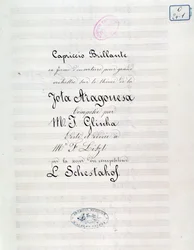 Capriccio Brillante
en forme d'ouverture pour grand
orchestre sur le thème de la
Jota Aragonesa
Composée par
M. J. Glinka
dédié à
M. F. Liszt
par la sœur du compositeur
L. Schestakof